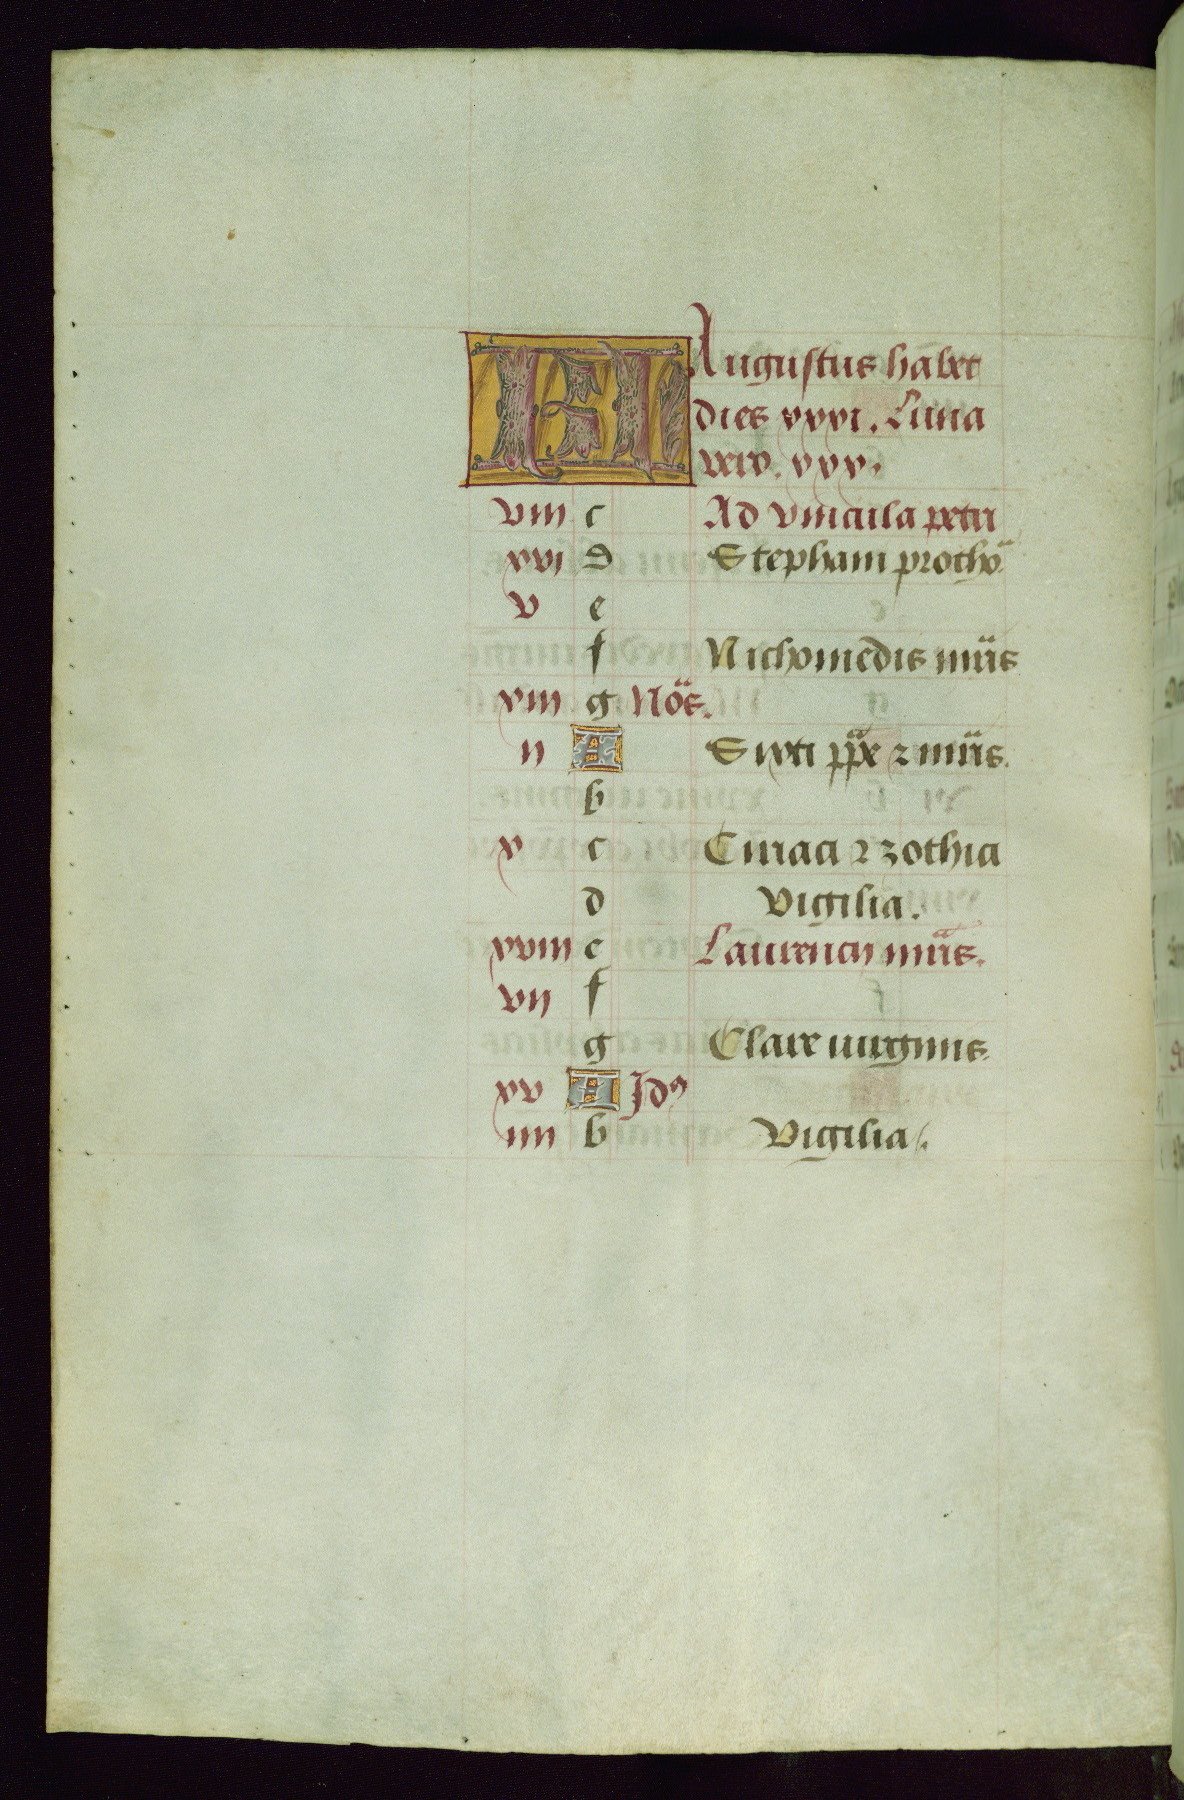 KL Augustus habet
dies xxxi. Luna
vero. xxx.
viii c Ad vincula petri
xvi d Stephani protho
v e
f Nichomedis mris
xiii g Nos.
ii A Sixti ppe ⁊ mris.
b
x c Ciriaci ⁊ zothici
d Vigilia.
xviii e Laurencij mris.
vii f
g Clare uirginis.
xv A Idꝰ
iiii b Vigilia.